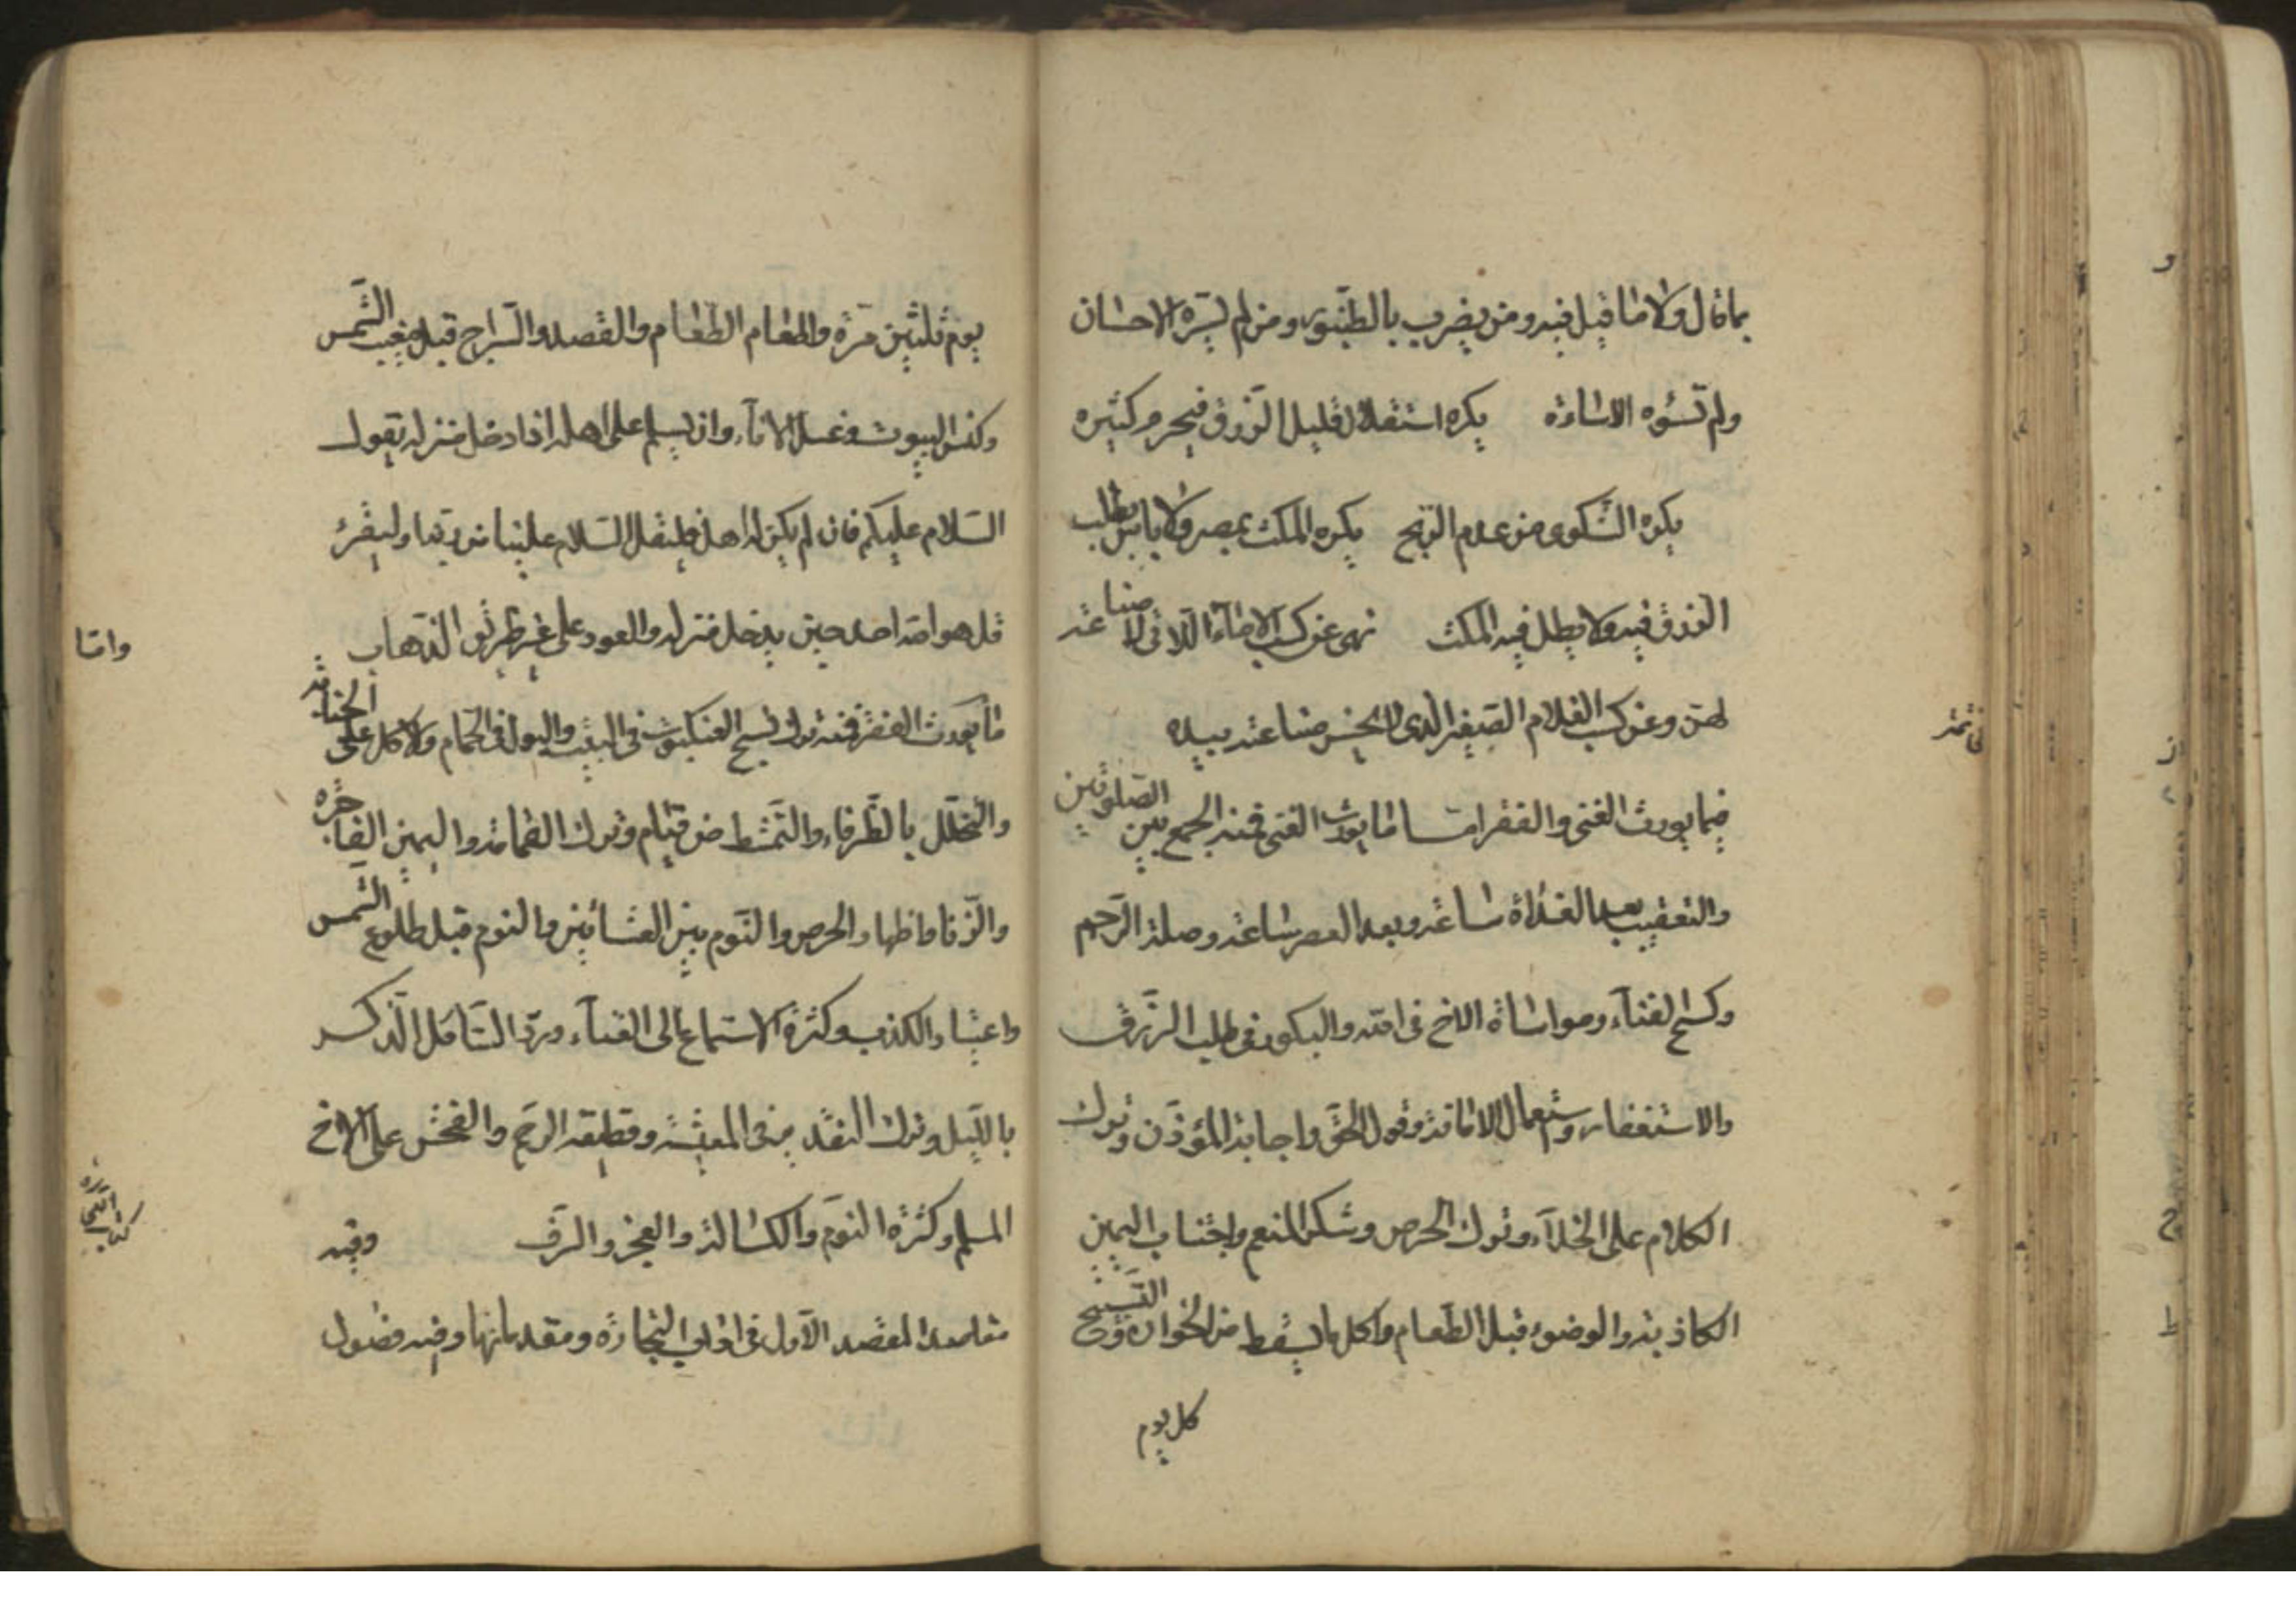 بما قال ولا ما قيل فيه ومن يضرب بالطنبور ومن لم تسره الاحسان
ولم تسؤه الاساءة يكره استقلال قليل الرزق فيحرم كثيره
يكره الشكوى من عدم الربح يكره المكث بمصر ولا باس بطلب
الرزق فيه ولا يطل فيه المكث نهى عن كسب الاماء اللاتى لا صناعة
لهن وعن كسب الغلام الصغير الذى لا يحسن صناعة بيده
فى تتمة
فيما يورث الغنى والفقر اما ما يورث الغنى فمنه الجمع بين الصلوتين
والتعقيب بعد الغداة ساعة وبعد العصر ساعة وصلة الرحم
وكسح الفناء ومواساة الاخ فى الله والبكور فى طلب الرزق
والاستغفار واستعمال الامانة وقول الحق واجابة المؤذن وترك
الكلام على الخلاء وترك الحرص وشكر المنعم واجتناب اليمين
الكاذبة والوضوء قبل الطعام واكل ما يسقط من الخوان وتسبيح
كل يوم
يوم ثلثين مرة واطعام الطعام والقصد والسراج قبل مغيب الشمس
وكنس البيوت وغسل الاناء وان يسلم على اهله اذا دخل منزله يقول
السلام عليكم فان لم يكن له اهل فليقل السلام علينا من ربنا وليقرء
قل هو الله احد حين يدخل منزله والعود على غير طريق الذهاب
واما
ما يورث الفقر فمنه ترك نسج العنكبوت فى البيت والبول فى الحمام والاكل على الجنابة
والتخلل بالطرفاء والتمشط من قيام وترك القمامة واليمين الفاجرة
والزنا واظهار الحرص والنوم بين العشائين والنوم قبل طلوع الشمس
واعتياد الكذب وكثرة الاستماع الى الغناء ورد السائل الذكر
بالليل وترك التقدير فى المعيشة وقطيعة الرحم والفحش على الاخ
المسلم وكثرة النوم والكسالة والعجز وفيه
كتاب التجارة
مقاصد المقصد الاول فى اداب التجارة ومقدماتها وفيه فصول